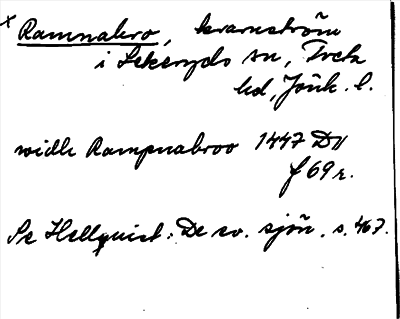 x Ramnabro, kvarnström
i Lekeryds sn, Tveta
hd, Jönk. l.
widh Rampnabroo 1447 DV
f 69 r.
Se Hellquist: De sv. sjön. s. 467.